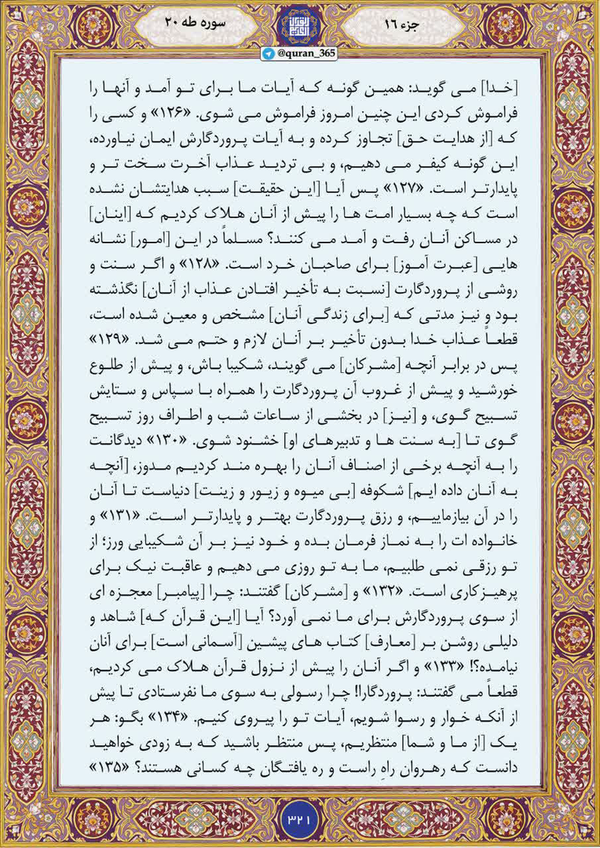 جزء ۱۶
سوره طه ۲۰
@quran_365
[خدا] می گوید: همین گونه که آیات ما برای تو آمد و آنها را
فراموش کردی این چنین امروز فراموش می شوی. «۱۲۶» و کسی را
که [از هدایت حق] تجاوز کرده و به آیات پروردگارش ایمان نیاورده،
این گونه کیفر می دهیم، و بی تردید عذاب آخرت سخت تر و
پایدارتر است. «۱۲۷» پس آیا [این حقیقت] سبب هدایتشان نشده
است که چه بسیار امت ها را پیش از آنان هلاک کردیم که [اینان]
در مساکن آنان رفت و آمد می کنند؟ مسلماً در این [امور] نشانه
هایی [عبرت آموز] برای صاحبان خرد است. «۱۲۸» و اگر سنت و
روشی از پروردگارت [نسبت به تأخیر افتادن عذاب از آنان] نگذشته
بود و نیز مدتی که [برای زندگی آنان] مشخص و معین شده است،
قطعاً عذاب خدا بدون تأخیر بر آنان لازم و حتم می شد. «۱۲۹»
پس در برابر آنچه [مشرکان] می گویند، شکیبا باش، و پیش از طلوع
خورشید و پیش از غروب آن پروردگارت را همراه با سپاس و ستایش
تسبیح گوی، و [نیز] در بخشی از ساعات شب و اطراف روز تسبیح
گوی تا [به سنت ها و تدبیرهای او] خشنود شوی. «۱۳۰» دیدگانت
را به آنچه برخی از اصناف آنان را بهره مند کردیم مدوز، [آنچه
به آنان داده ایم] شکوفه [بی میوه و زیور و زینت] دنیاست تا آنان
را در آن بیازماییم، و رزق پروردگارت بهتر و پایدارتر است. «۱۳۱» و
خانواده ات را به نماز فرمان بده و خود نیز بر آن شکیبایی ورز؛ از
تو رزقی نمی طلبیم، ما به تو روزی می دهیم و عاقبت نیک برای
پرهیزکاری است. «۱۳۲» و [مشرکان] گفتند: چرا [پیامبر] معجزه ای
از سوی پروردگارش برای ما نمی آورد؟ آیا [این قرآن که] شاهد و
دلیلی روشن بر [معارف] کتاب های پیشین [آسمانی است] برای آنان
نیامده؟! «۱۳۳» و اگر آنان را پیش از نزول قرآن هلاک می کردیم،
قطعاً می گفتند: پروردگارا! چرا رسولی به سوی ما نفرستادی تا پیش
از آنکه خوار و رسوا شویم، آیات تو را پیروی کنیم. «۱۳۴» بگو: هر
یک [از ما و شما] منتظریم، پس منتظر باشید که به زودی خواهید
دانست که رهروان راهِ راست و ره یافتگان چه کسانی هستند؟ «۱۳۵»
۳۲۱